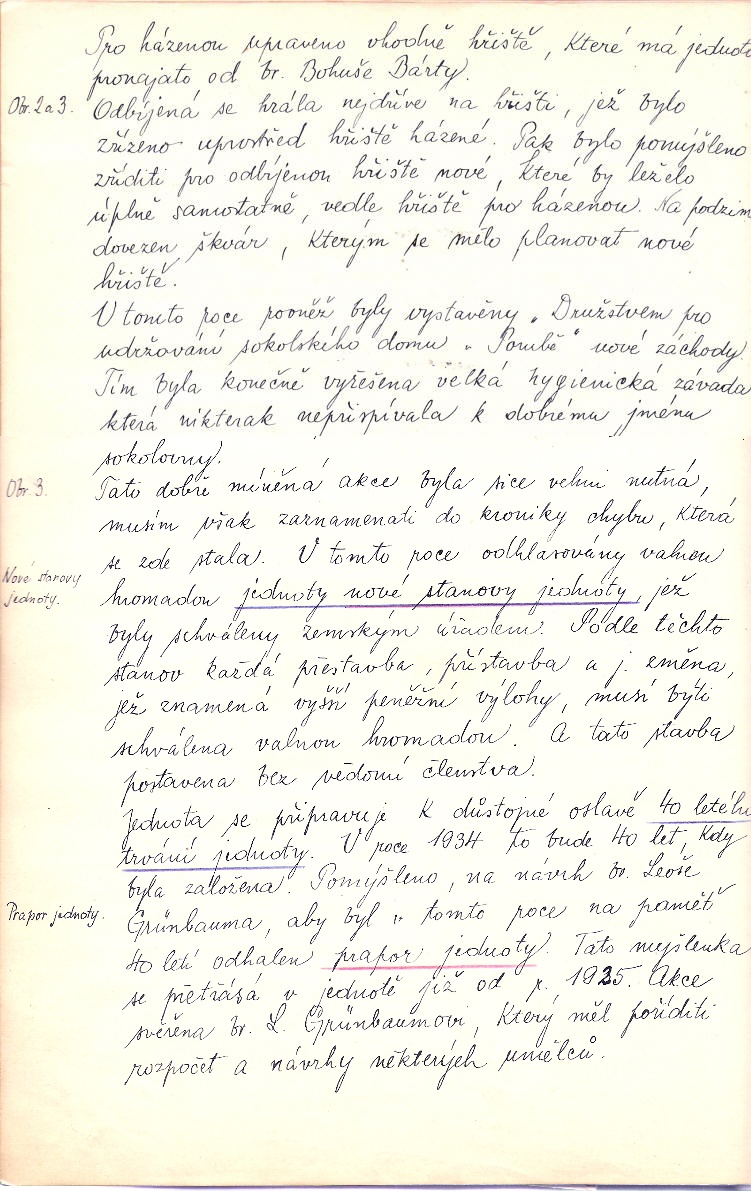 Pro házenou upraveno vhodné hřiště, které má jednota
pronajato od br. Bohuše Bárty.
Obr. 2 a 3.
Odbíjená se hrála nejdříve na hřišti, jež bylo
zřízeno uprostřed hřiště házené. Pak bylo pomýšleno
zříditi pro odbíjenou hřiště nové, které by leželo
úplně samostatně, vedle hřiště pro házenou. Na podzim
dovezen škvár, kterým se mělo planovat nové
hřiště.
V tomto roce rovněž byly vystavěny „Družstvem pro
udržování sokolského domu v Porubě" nové záchody.
Tím byla konečně vyřešena velká hygienická závada
která nikterak nepřispívala k dobrému jménu
sokolovny.
Obr. 3.
Tato dobře míněná akce byla sice velmi nutná,
musím však zaznamenati do kroniky chybu, která
se zde stala. V tomto roce odhlasovány valnou
Nové stanovy
jednoty.
hromadou jednoty nové stanovy jednoty, jež
byly schváleny zemským úřadem. Podle těchto
stanov každá přestavba, přístavba a j. změna,
jež znamená vyšší peněžní výlohy, musí býti
schválena valnou hromadou. A tato stavba
postavena bez vědomí členstva.
Jednota se připravuje k důstojné oslavě 40 letého
trvání jednoty. V roce 1934 to bude 40 let, kdy
byla založena. Pomýšleno, na návrh br. Leoše
Prapor jednoty.
Grünbauma, aby byl v tomto roce na paměť
40 letí odhalen prapor jednoty. Tato myšlenka
se přetřásá v jednotě již od r. 1925. Akce
svěřena br. L. Grünbaumovi, který měl poříditi
rozpočet a návrhy některých umělců.